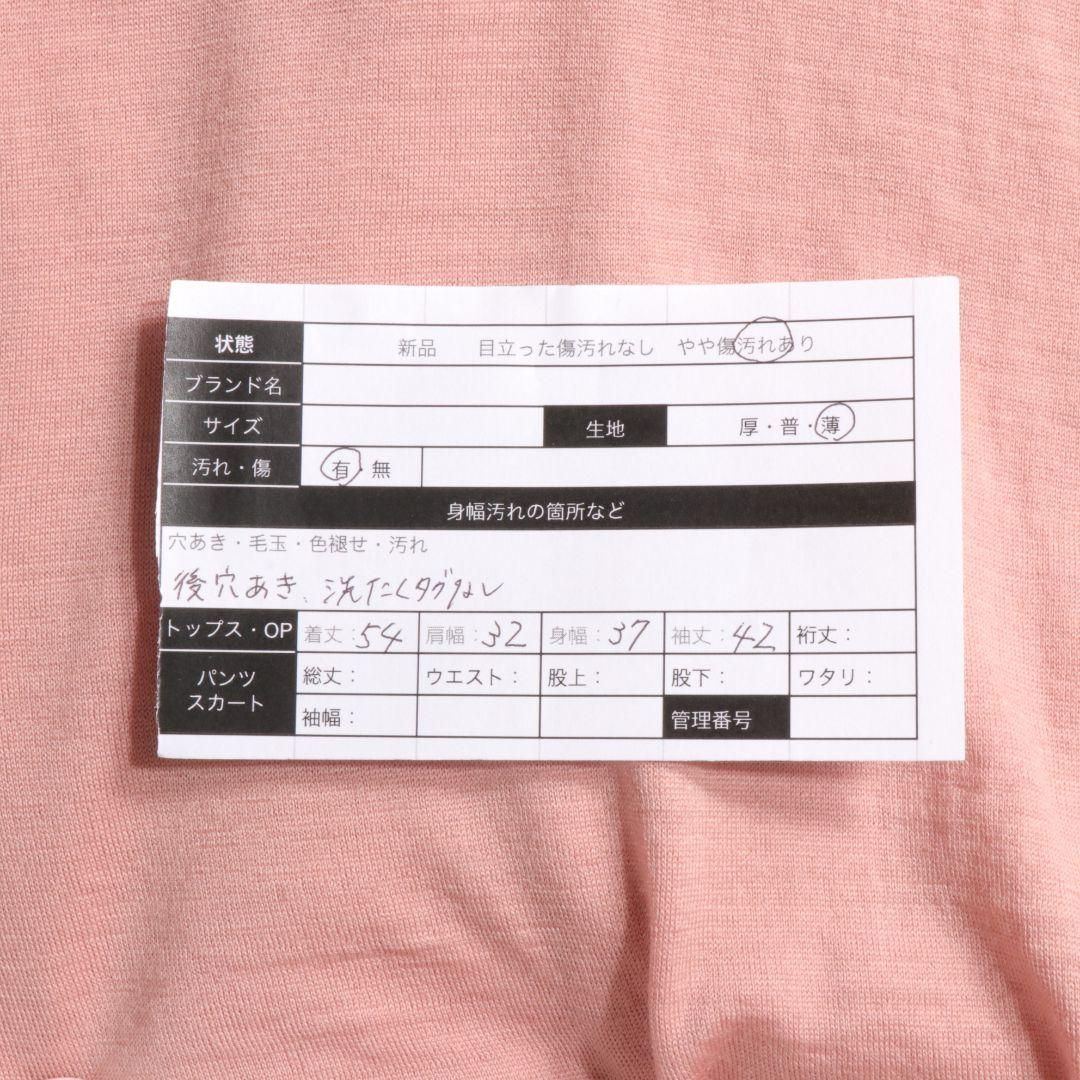 状態 新品 目立った傷汚れなし やや傷汚れあり
ブランド名
サイズ 生地 厚・普・薄
汚れ・傷 有・無
身幅汚れの箇所など
穴あき・毛玉・色褪せ・汚れ
後穴あき、洗たくタグなし
トップス・OP 着丈:54 肩幅:32 身幅:37 袖丈:42 裄丈:
パンツ 総丈: ウエスト: 股上: 股下: ワタリ:
スカート
袖幅: 管理番号